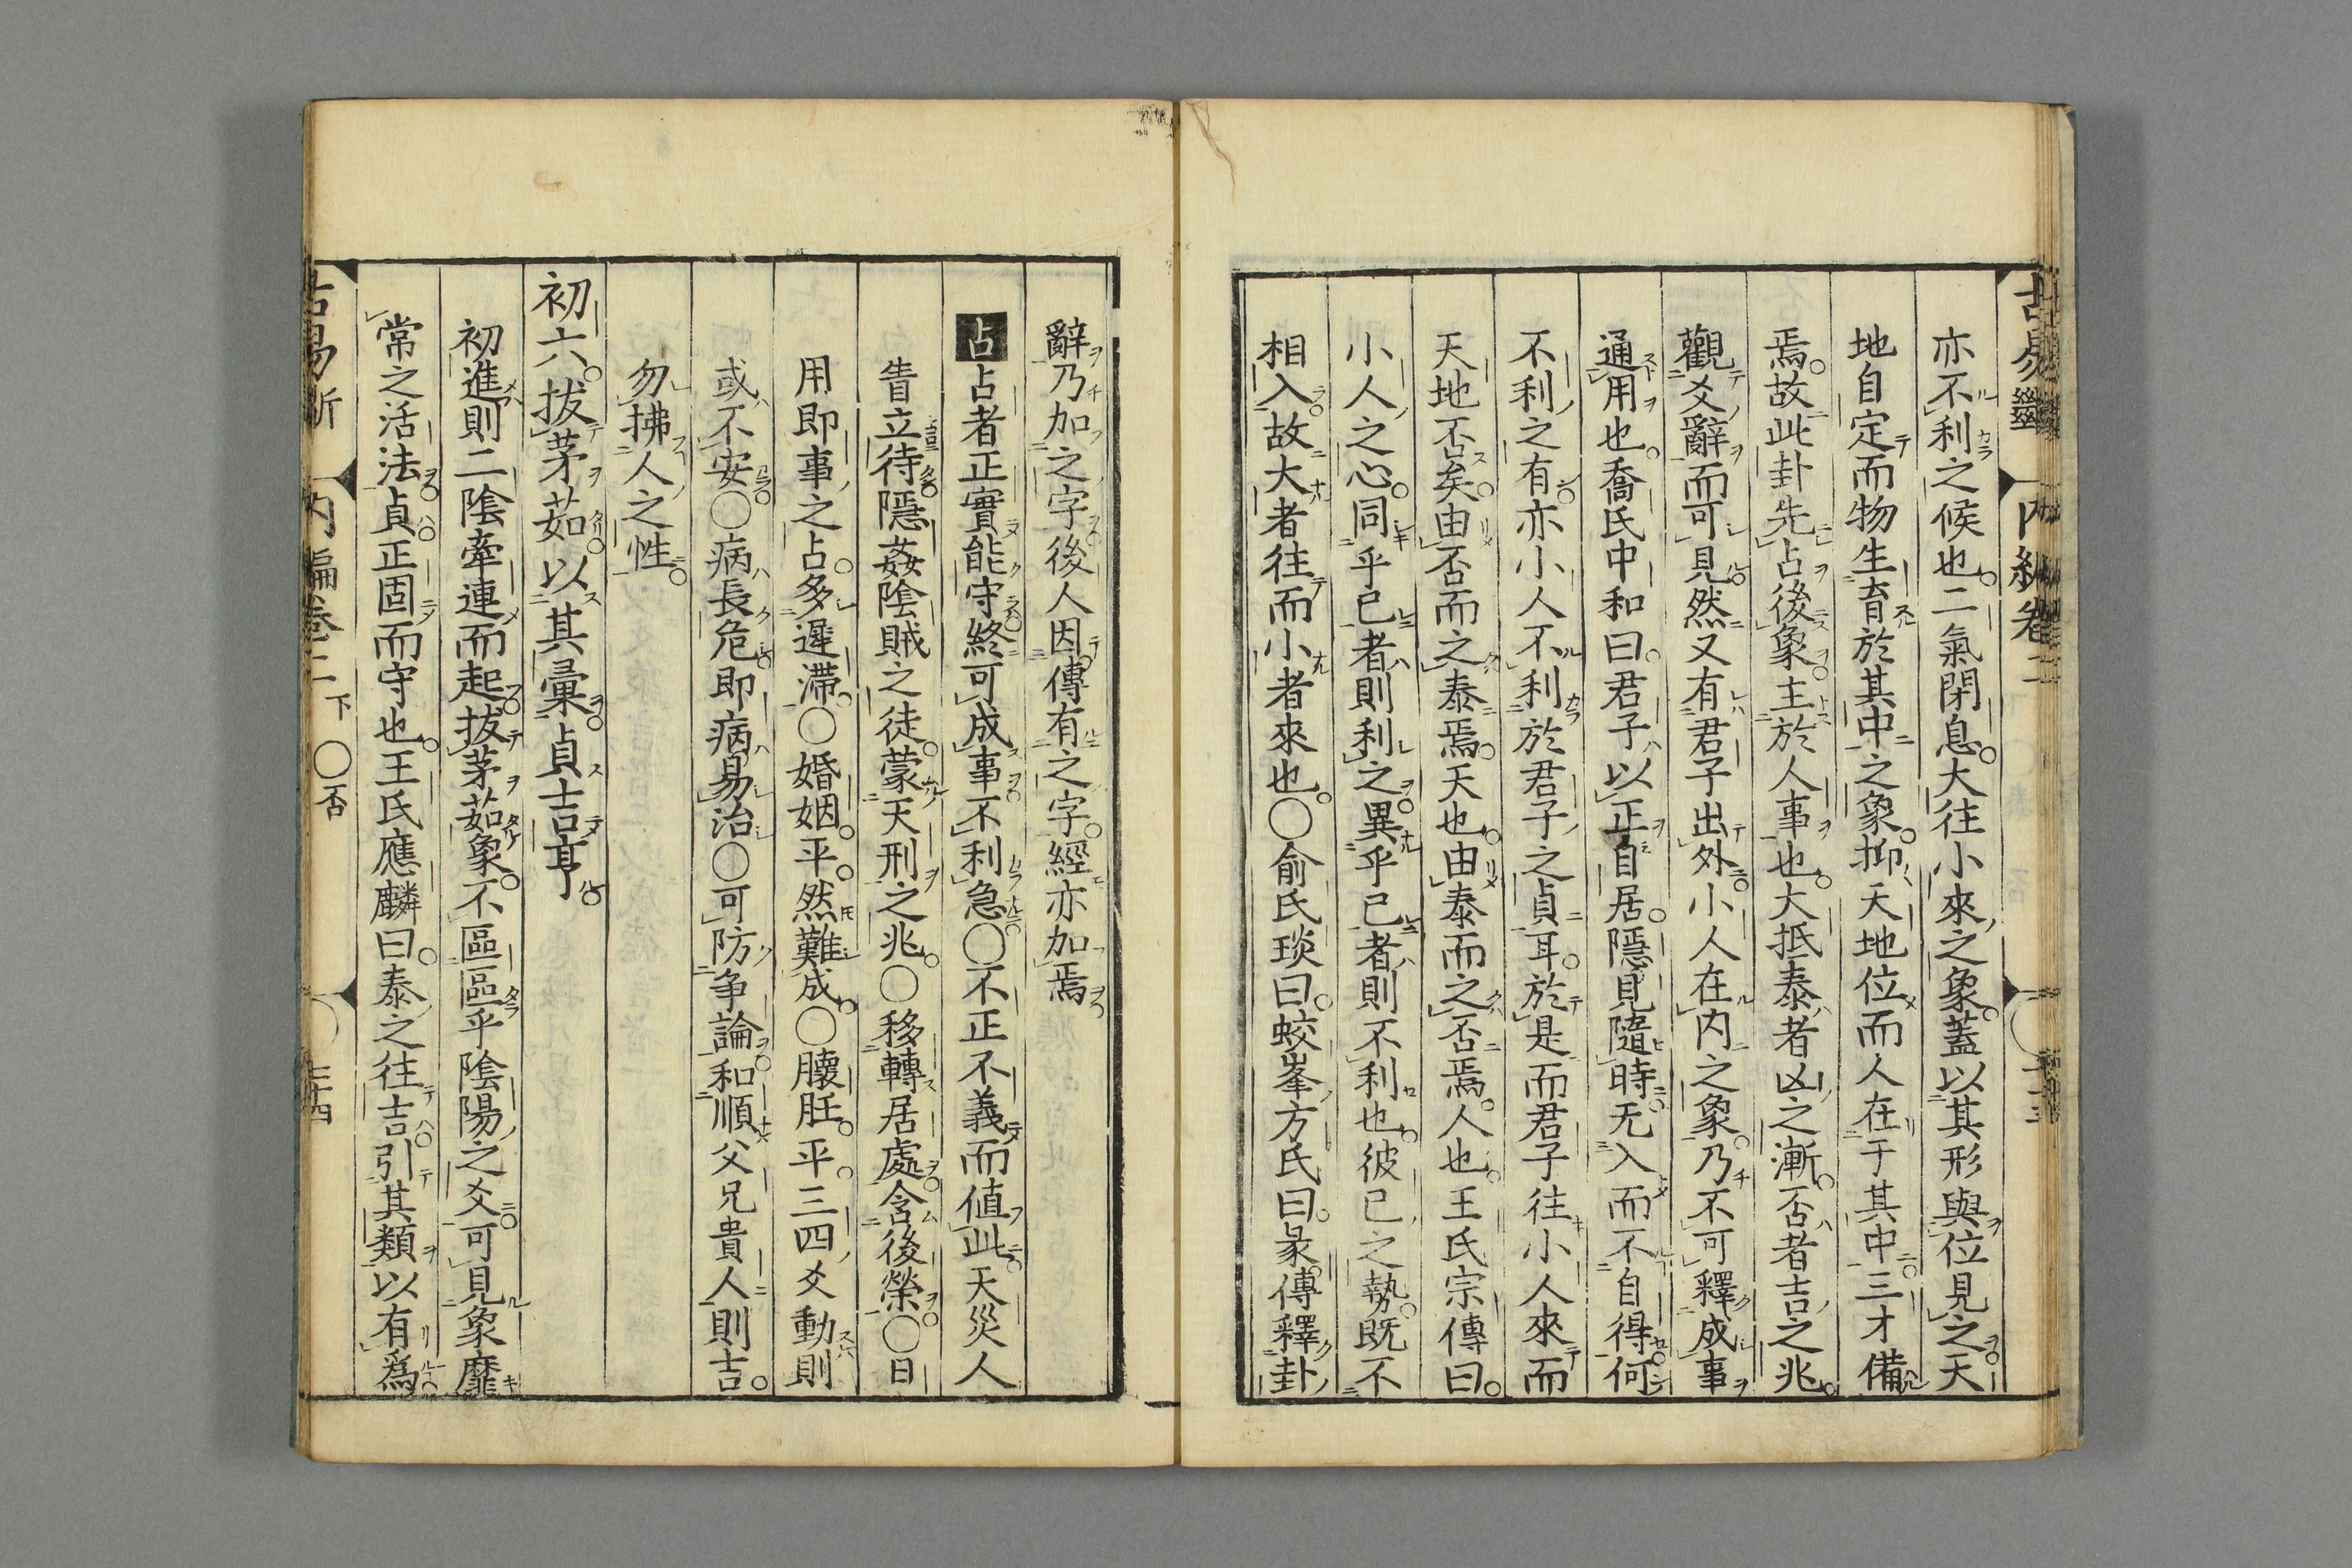 亦不利之候也二氣閉息大往小來之象蓋以其形與位見之天
地自定而物生育於其中之象抑天地位而人在于其中三才備
焉故此卦先占後象主於人事也大抵泰者凶之漸否者吉之兆
觀爻辭而可見然又有君子出外小人在内之象乃不可釋成事
通用也喬氏中和曰君子以正自居隱見隨時无入而不自得何
不利之有亦小人不利於君子之貞耳於是而君子往小人來而
天地否矣由否而之泰焉天也由泰而之否焉人也王氏宗傳曰
小人之心同乎已者則利之異乎已者則不利也彼已之勢既不
相入故大者往而小者來也〇俞氏琰曰蛟峯方氏曰彖傳釋卦
辭乃加之字後人因傳有之字經亦加焉
占占者正實能守終可成事不利急〇不正不義而値此天災人
眚立待隱姦陰賊之徒蒙天刑之兆〇移轉居處含後榮〇日
用即事之占多遲滯〇婚姻平然難成〇臃肛平三四爻動則
或不安〇病長危即病易治〇可防爭論和順父兄貴人則吉
勿拂人之性
初六拔茅茹以其彙貞吉亨
初進則二陰牽連而起拔茅茹象不區區乎陰陽之爻可見象靡
常之活法貞正固而守也王氏應麟曰泰之往吉引其類以有爲
内編卷二下 〇否